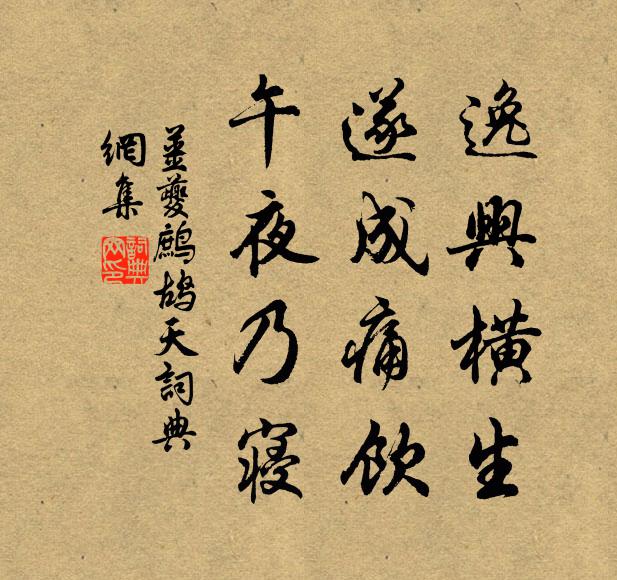 逸興橫生
遂成痛飲
午夜乃寝
姜夔鷓鴣天詞典
網集
詞典
网印